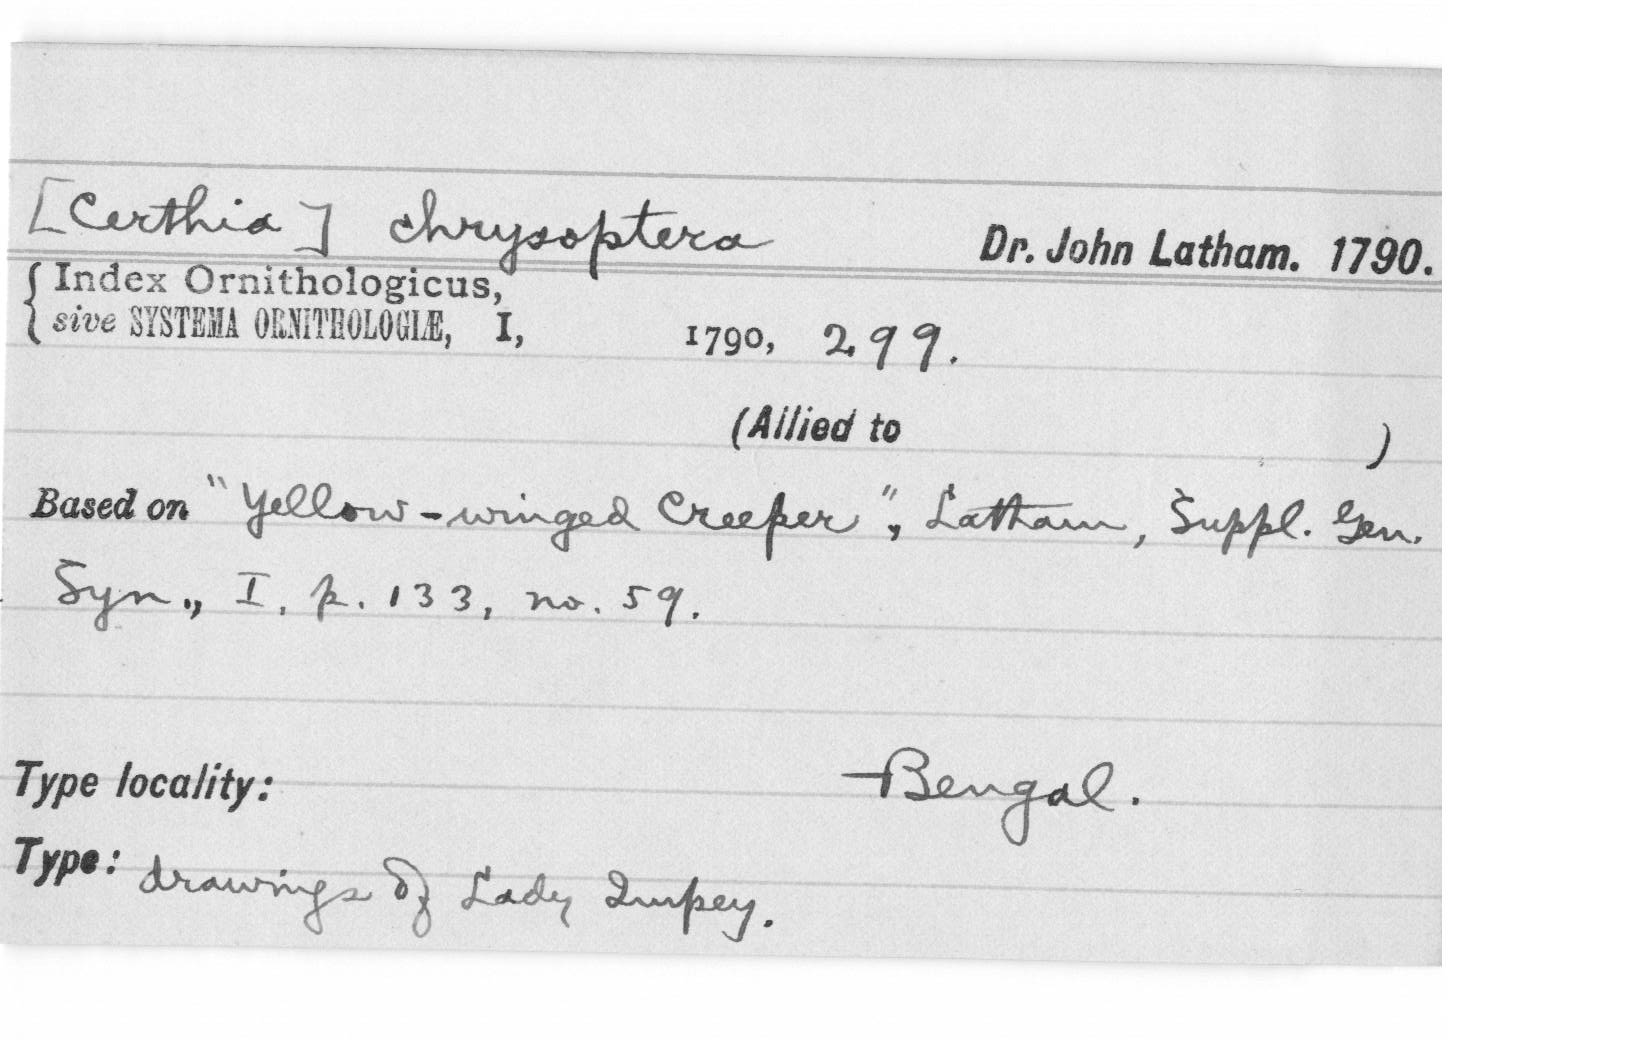 [Certhia] chrysoptera Dr. John Latham. 1790.
{ Index Ornithologicus,
sive SYSTEMA ORNITHOLOGIÆ, I, 1790, 299.
(Allied to )
Based on "Yellow-winged Creeper", Latham, Suppl. Gen.
Syn., I, p. 133, no. 59.
Type locality: Bengal.
Type: drawings of Lady Impey.